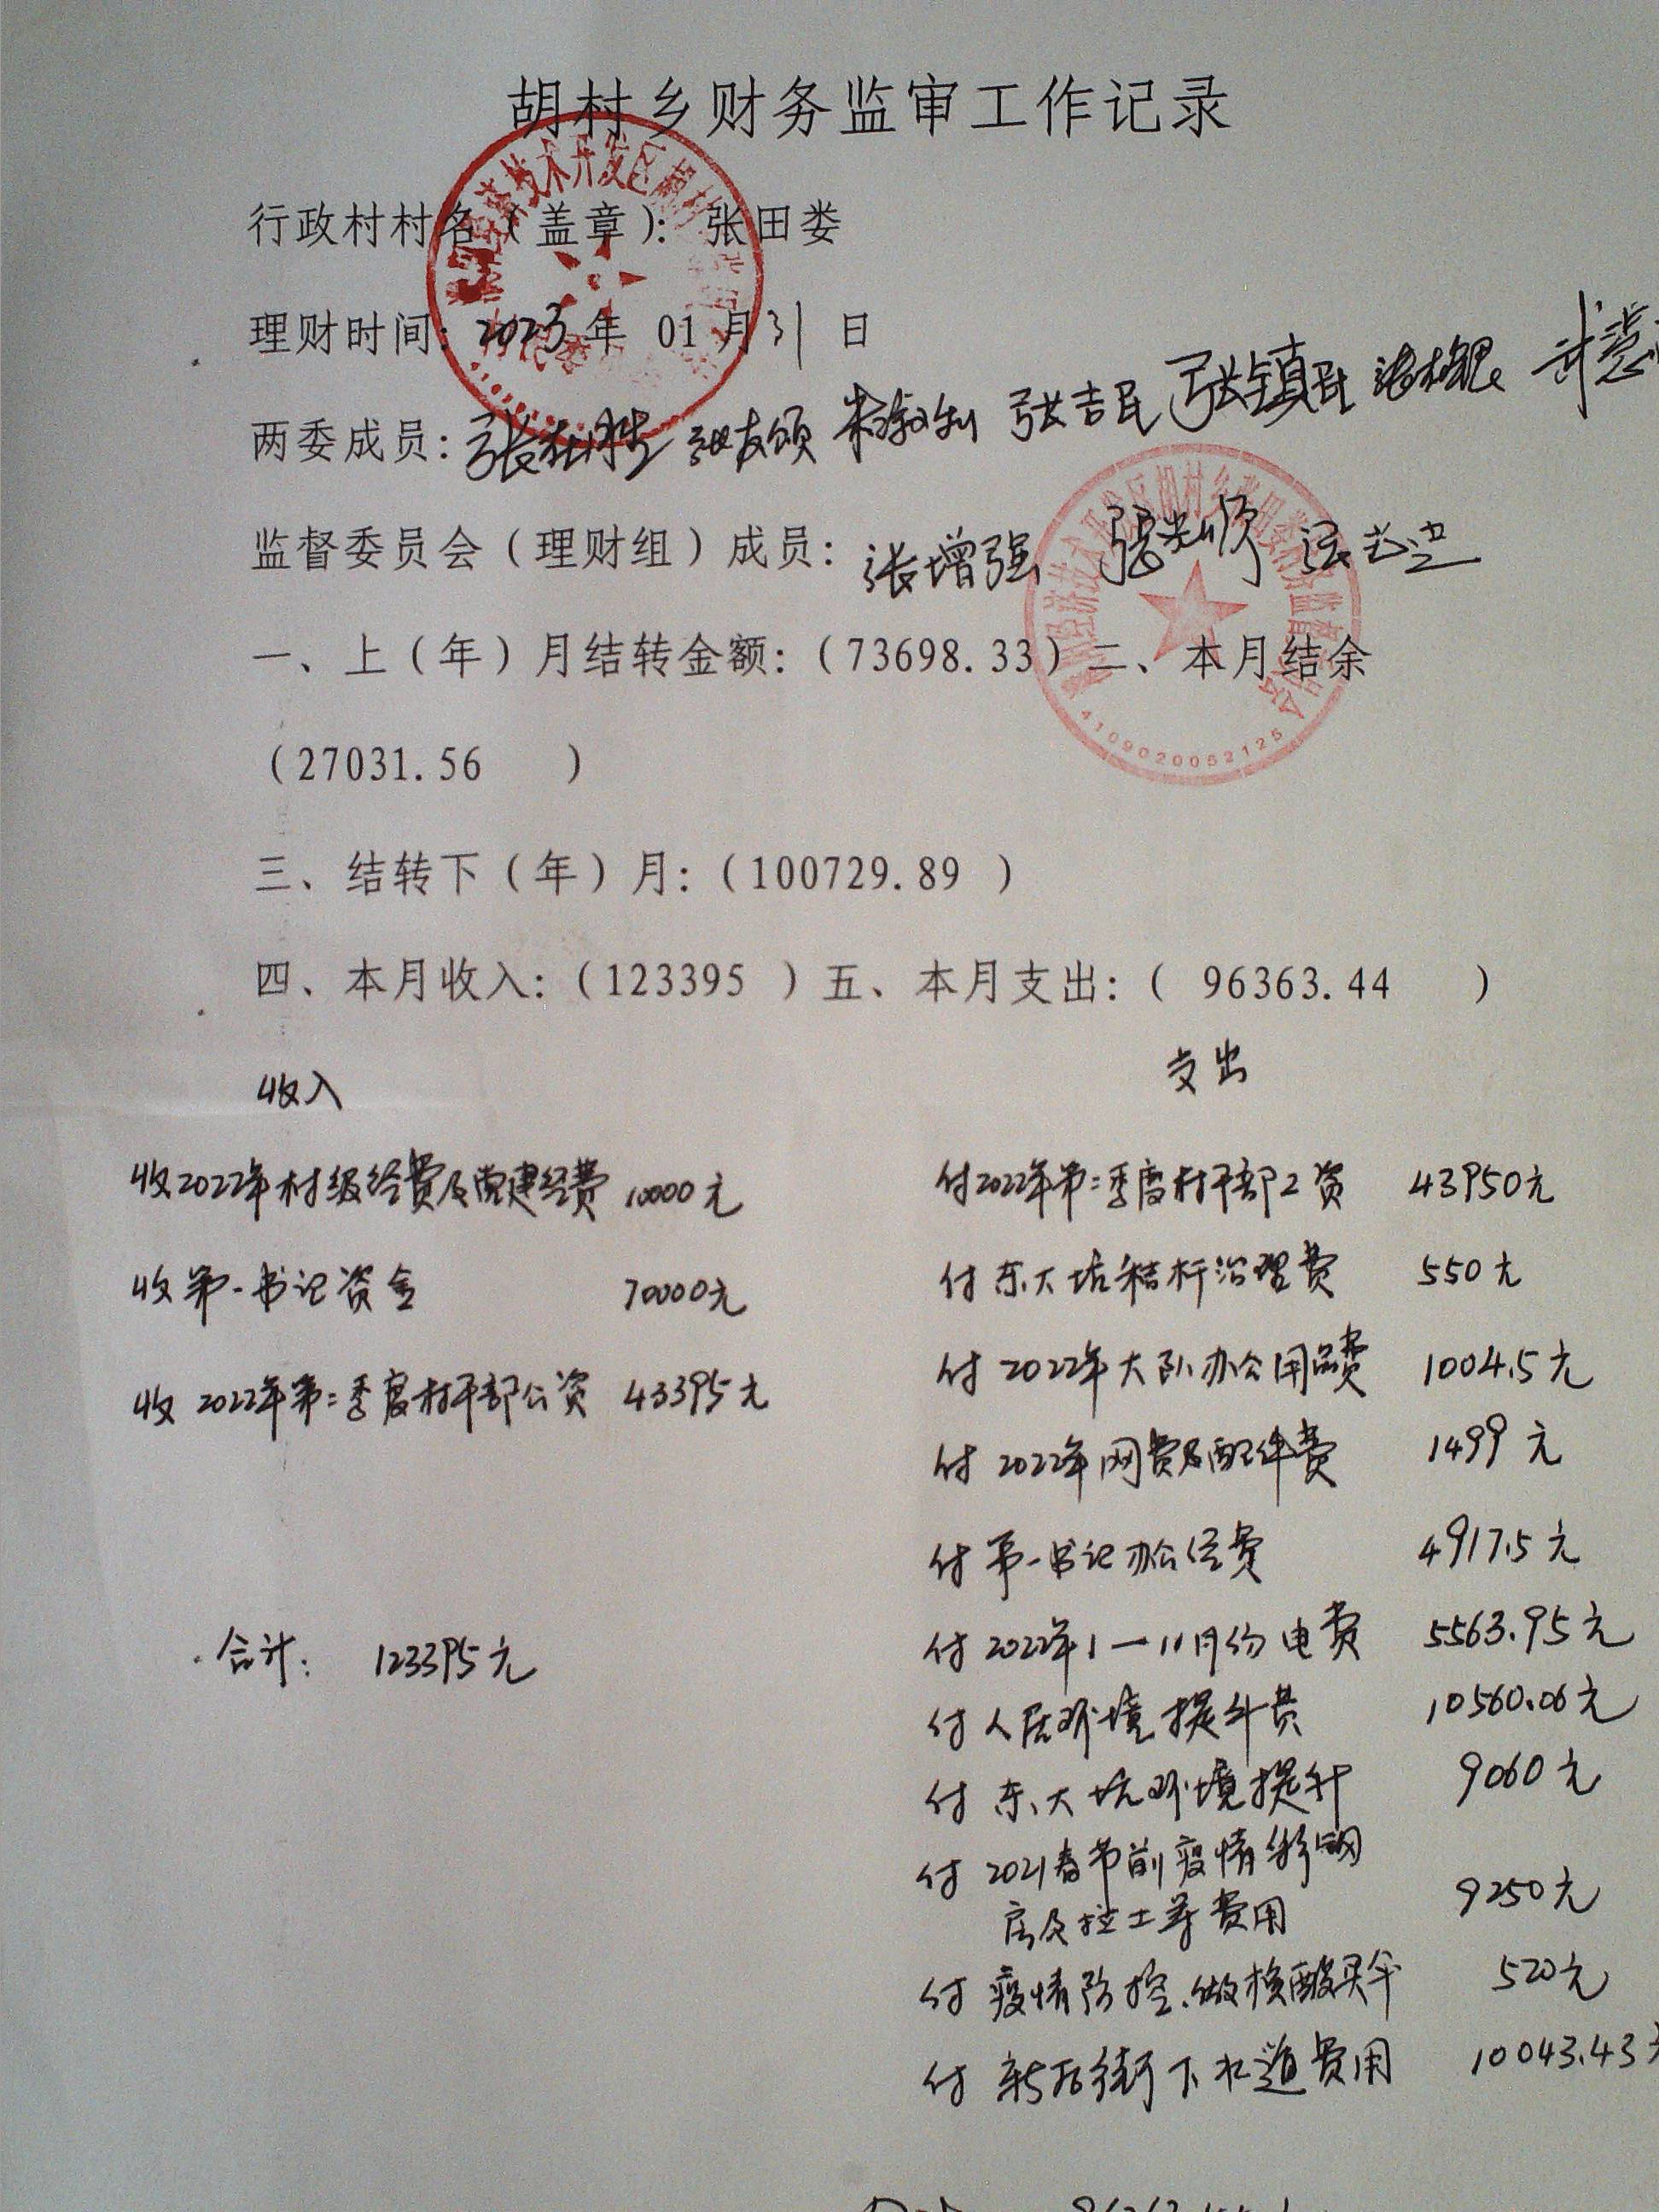 胡村乡财务监审工作记录
行政村村名（盖章）：张田娄
理财时间：2023年 01月31 日
两委成员：张友颂 张吉民 张镇民
监督委员会（理财组）成员：张增强 张光顺
4109020052125
一、上（年）月结转金额：（73698.33）二、本月结余
（27031.56 ）
三、结转下（年）月：（100729.89 ）
四、本月收入：（123395 ）五、本月支出：（ 96363.44 ）
收入
支出
收2022年村级经费及党建经费 10000元
付2022年第二季度村干部工资 43950元
收第一书记资金 70000元
付东大坑秸杆治理费 550元
收 2022年第二季度村干部公资 43395元
付 2022年大队办公用品费 1004.5元
付 2022年网费及配件费 1499元
付 第一书记办公经费 4917.5元
合计： 123395元
付 2022年1—10月份电费 5563.95元
付 人居环境提升费 10560.06元
付 东大坑环境提升 9060元
付 2021春节前疫情彩钢
房及拉土等费用 9250元
付 疫情防控.做核酸买伞 520元
付 新后街下水道费用 10043.43